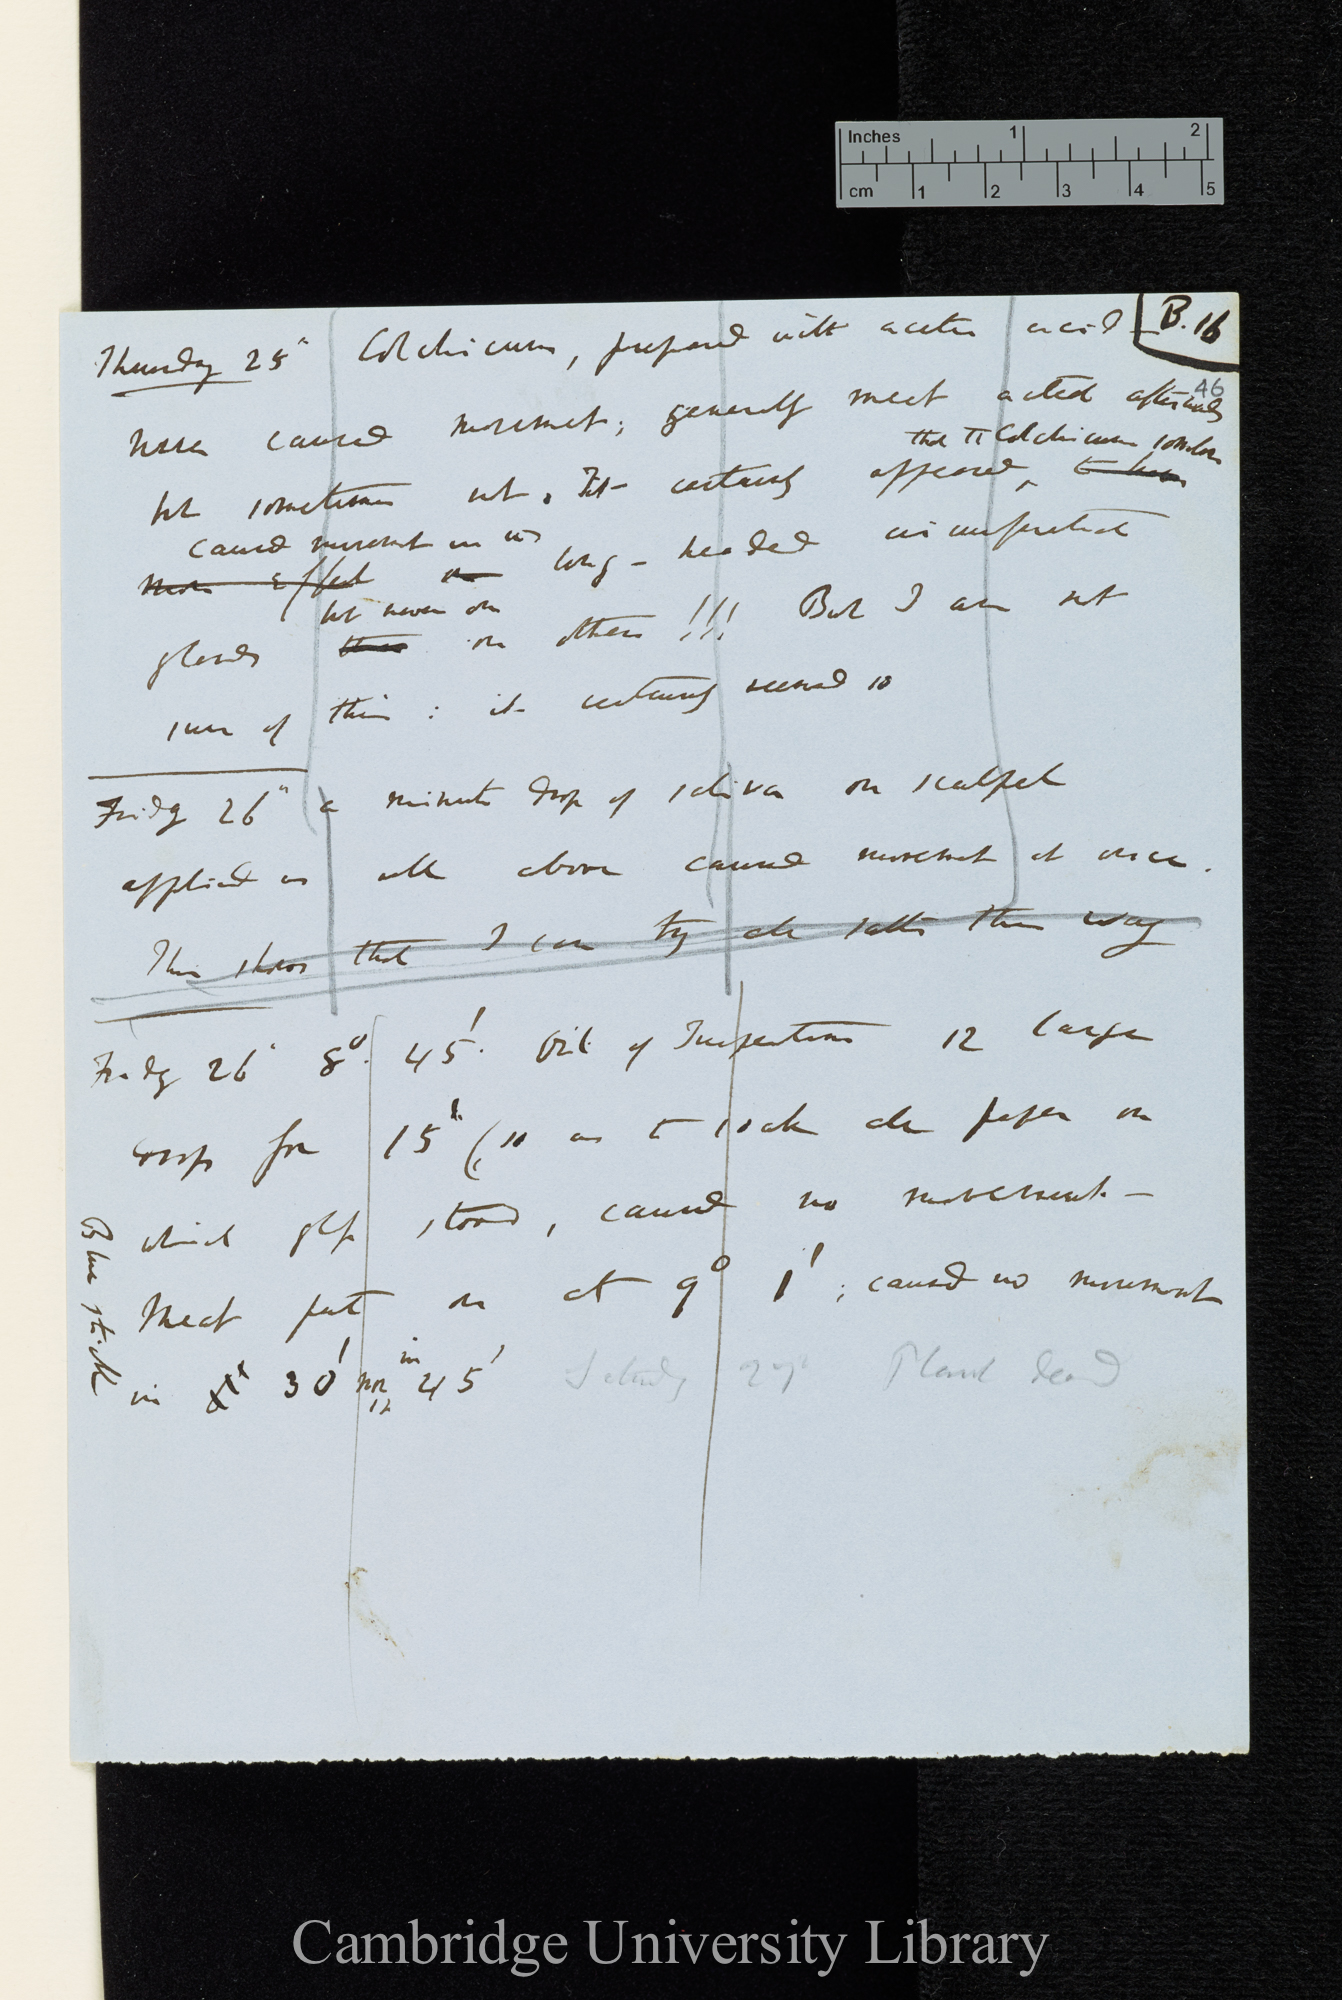 Inches 1 2
cm 1 2 3 4 5
B. 16
46
Thursday 25th Colchicum, prepared with acetic acid
never caused movement; generally meat acted afterwards
that Colchicum
but sometimes not. It certainly appeared, to have
caused movement in
more effect on long-headed
but never on
glands them on others!!! But I am not
sure of this: it certainly seemed so
Friday 26th a minute drop of saliva on scalpel
applied as all above caused movement at once.
This shows that I can try all salts this way
Friday 26th 8° 45'. Oil of Turpentine 12 large
drops for 15' (so as to soak the paper on
which glass stood, caused no movement —
Meat put on at 9° 1'; caused no movement
in 30' nor in 45'
12
Saturday 27th Plant dead
Blue stick
Cambridge University Library